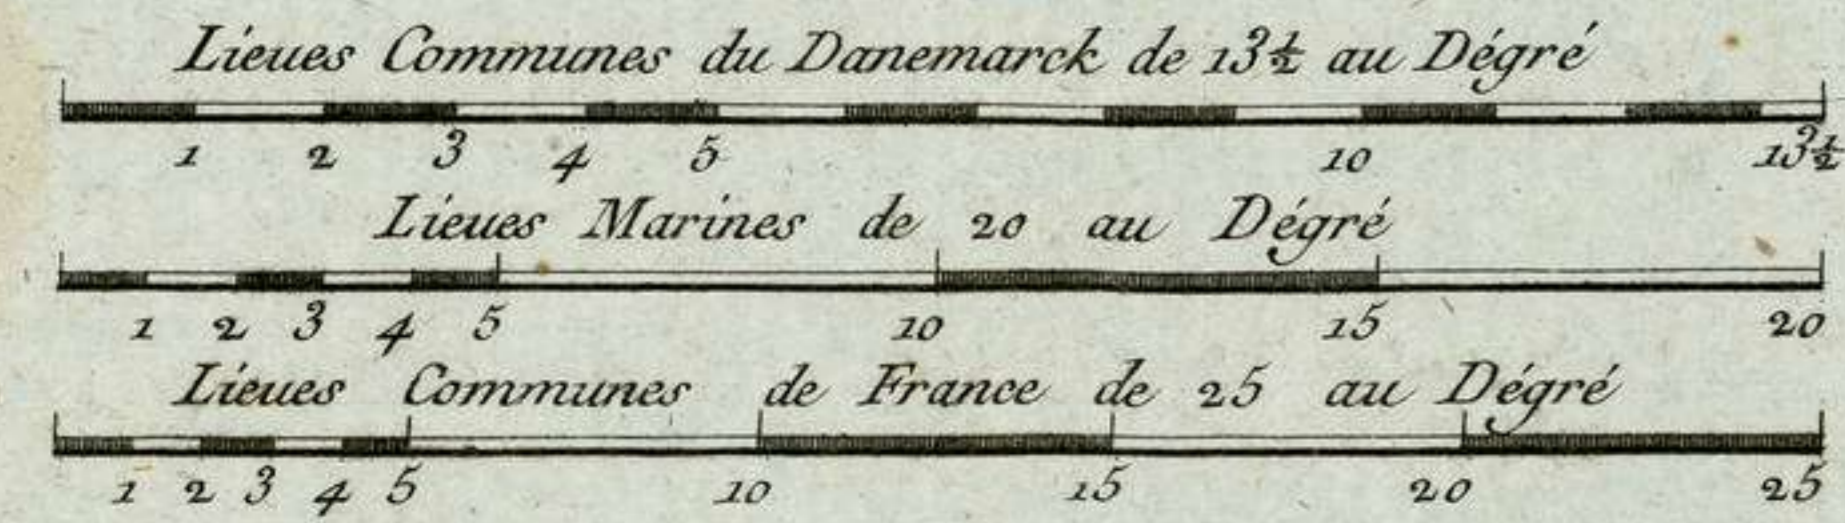 Lieues Communes du Danemarck de 13½ au Dégré
1 2 3 4 5 10 13½
Lieues Marines de 20 au Dégré
1 2 3 4 5 10 15 20
Lieues Communes de France de 25 au Dégré
1 2 3 4 5 10 15 20 25